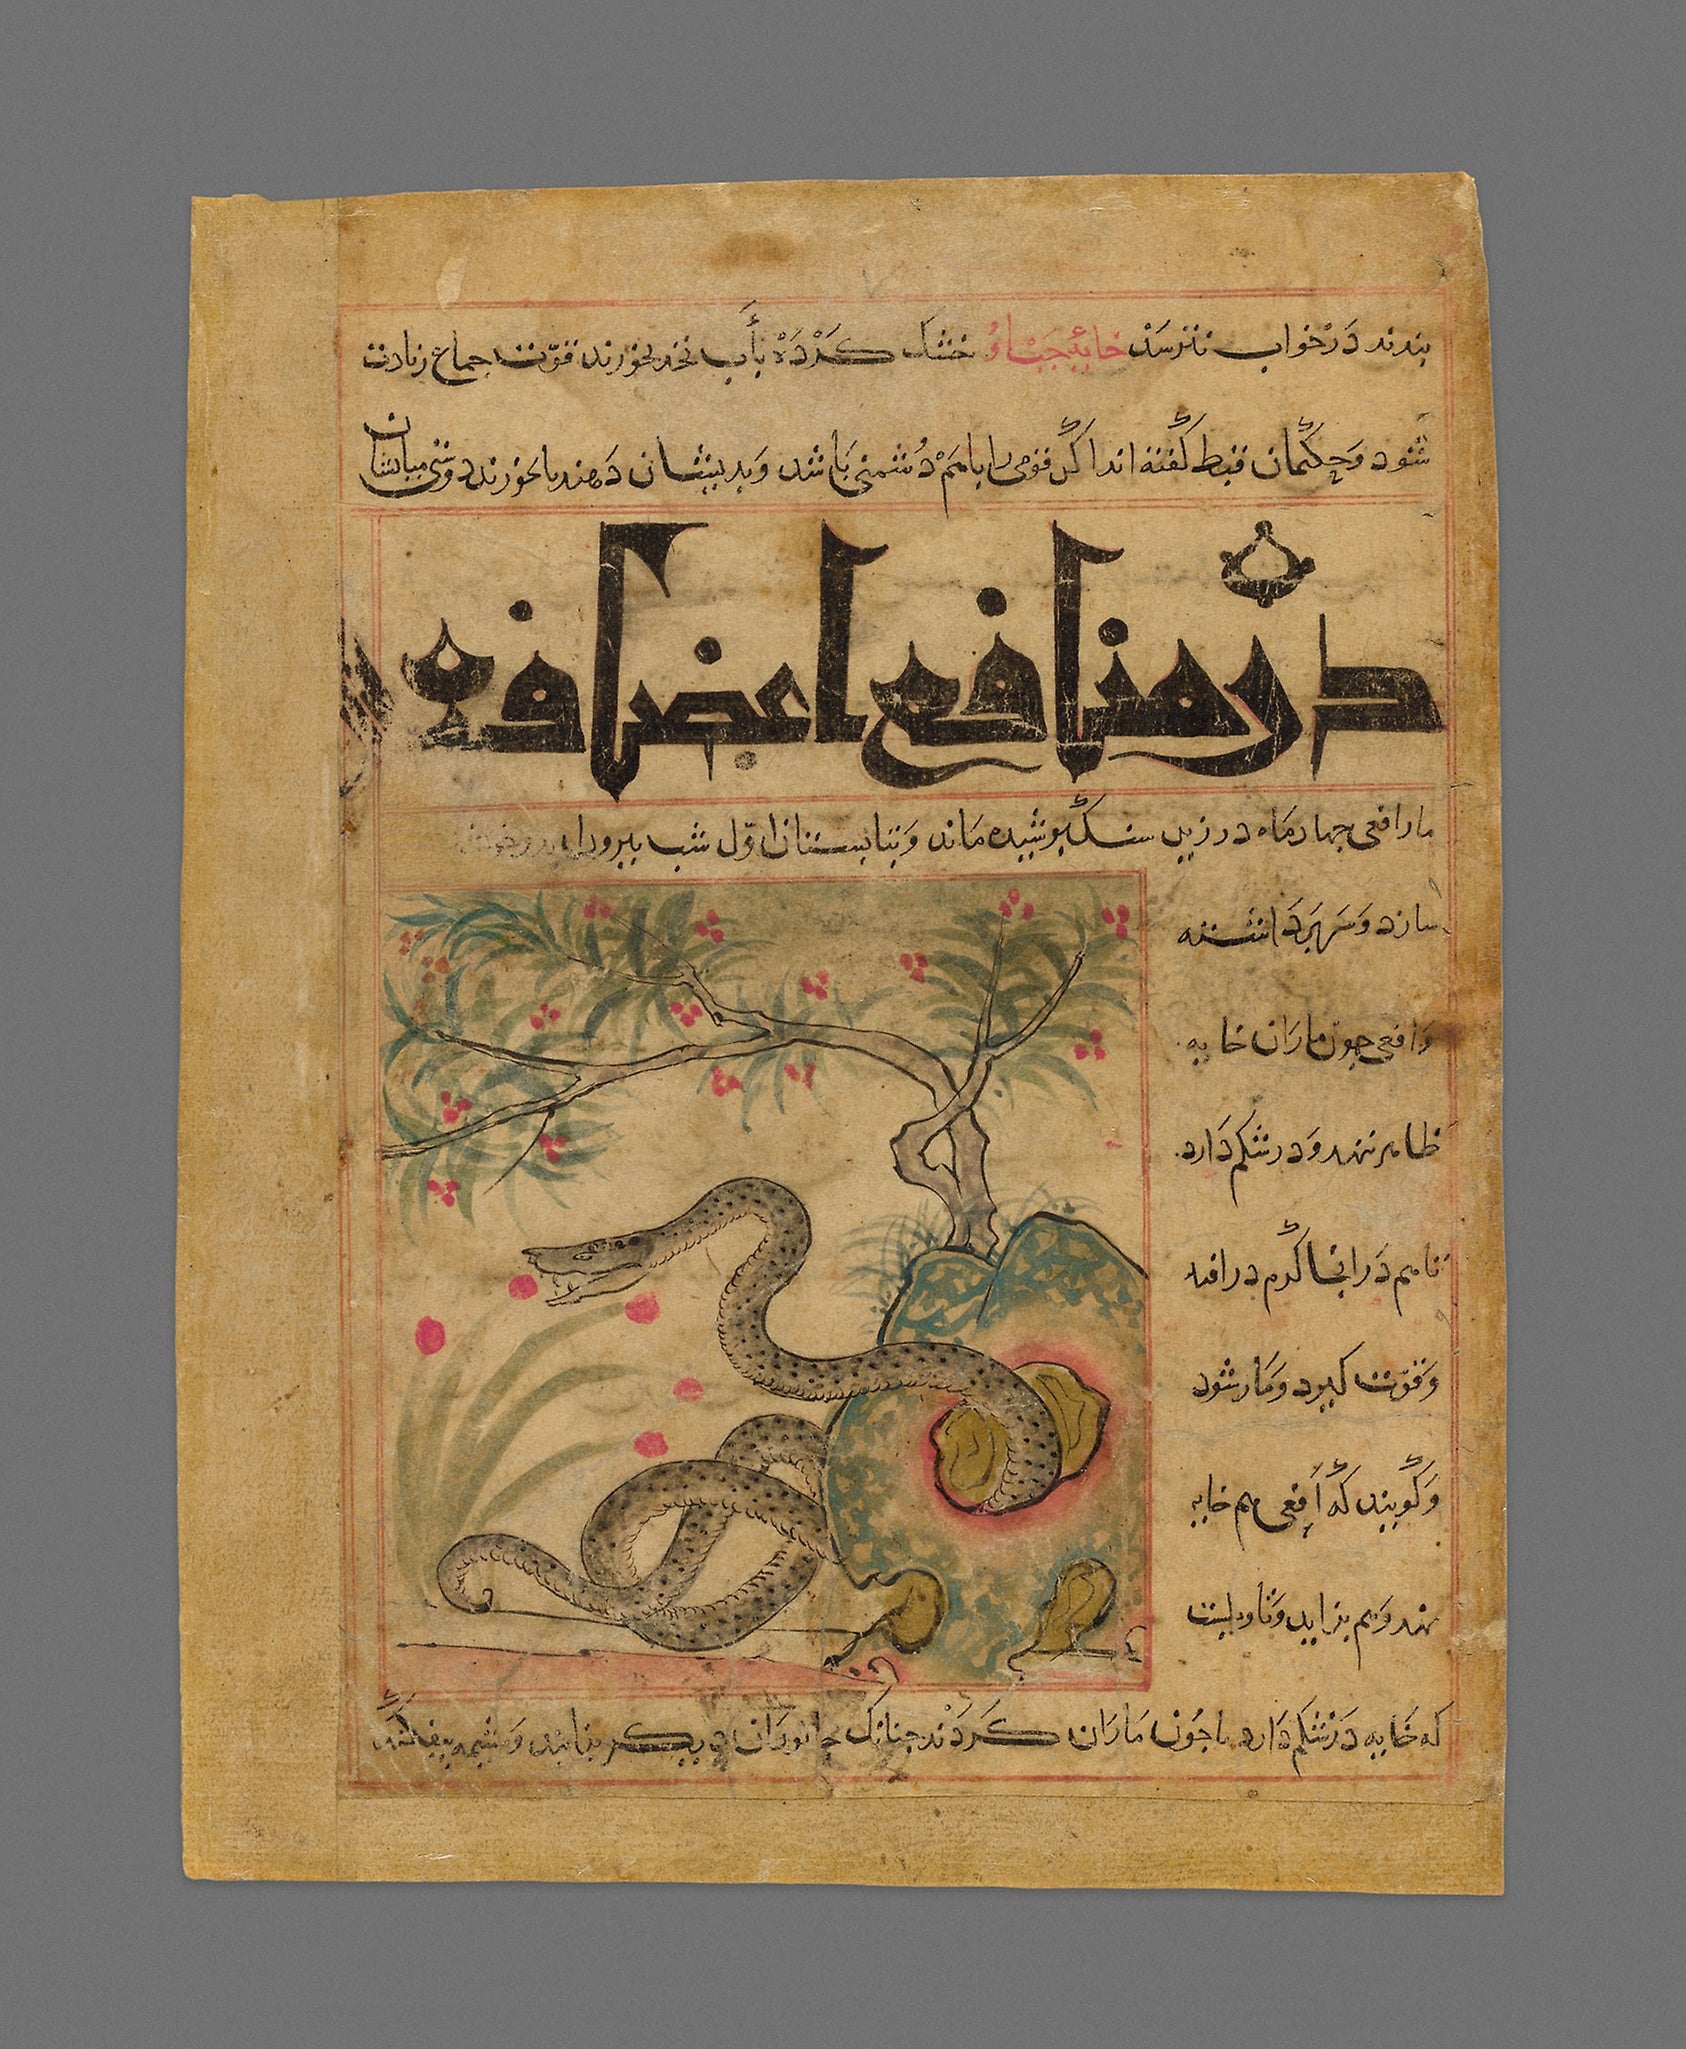 بندند دَرْخواب نترسَدْ خایهٔ جَبٰاوُ خشک کَرْدَهْ بآَبِ نخد بخورند قوّت جماع زیادت
شَود وَحکیٖمان قبط گفته اند اکَر قومی را باهَمْ دُشمنی بَاشد وَبدیشان دَهند تا بخورند دوستی میانشان
در منافع اعضا افعی
مار افعی چهار مَاه در زیر سنک پوشیده مَاند وَبتابستان اوّل شب بیرون آید
سازد وَسَربَردَاشته
وَافعی چون مارَان خایه
ظاهر ننهد وَدر شکم دَارد
تا هم دَر انجا کَرم در افتد
وَقوّت کیرد وَمار شود
وَکَویند که اَفعی هم خایه
نهد وَهم بزاید وَتاویلیست
که خَایه دَرْشکم دَارد تا چُون مَارَان کَرَدْند چنانک جانورَان دیکر بزایند وَمشیمه بیفکند